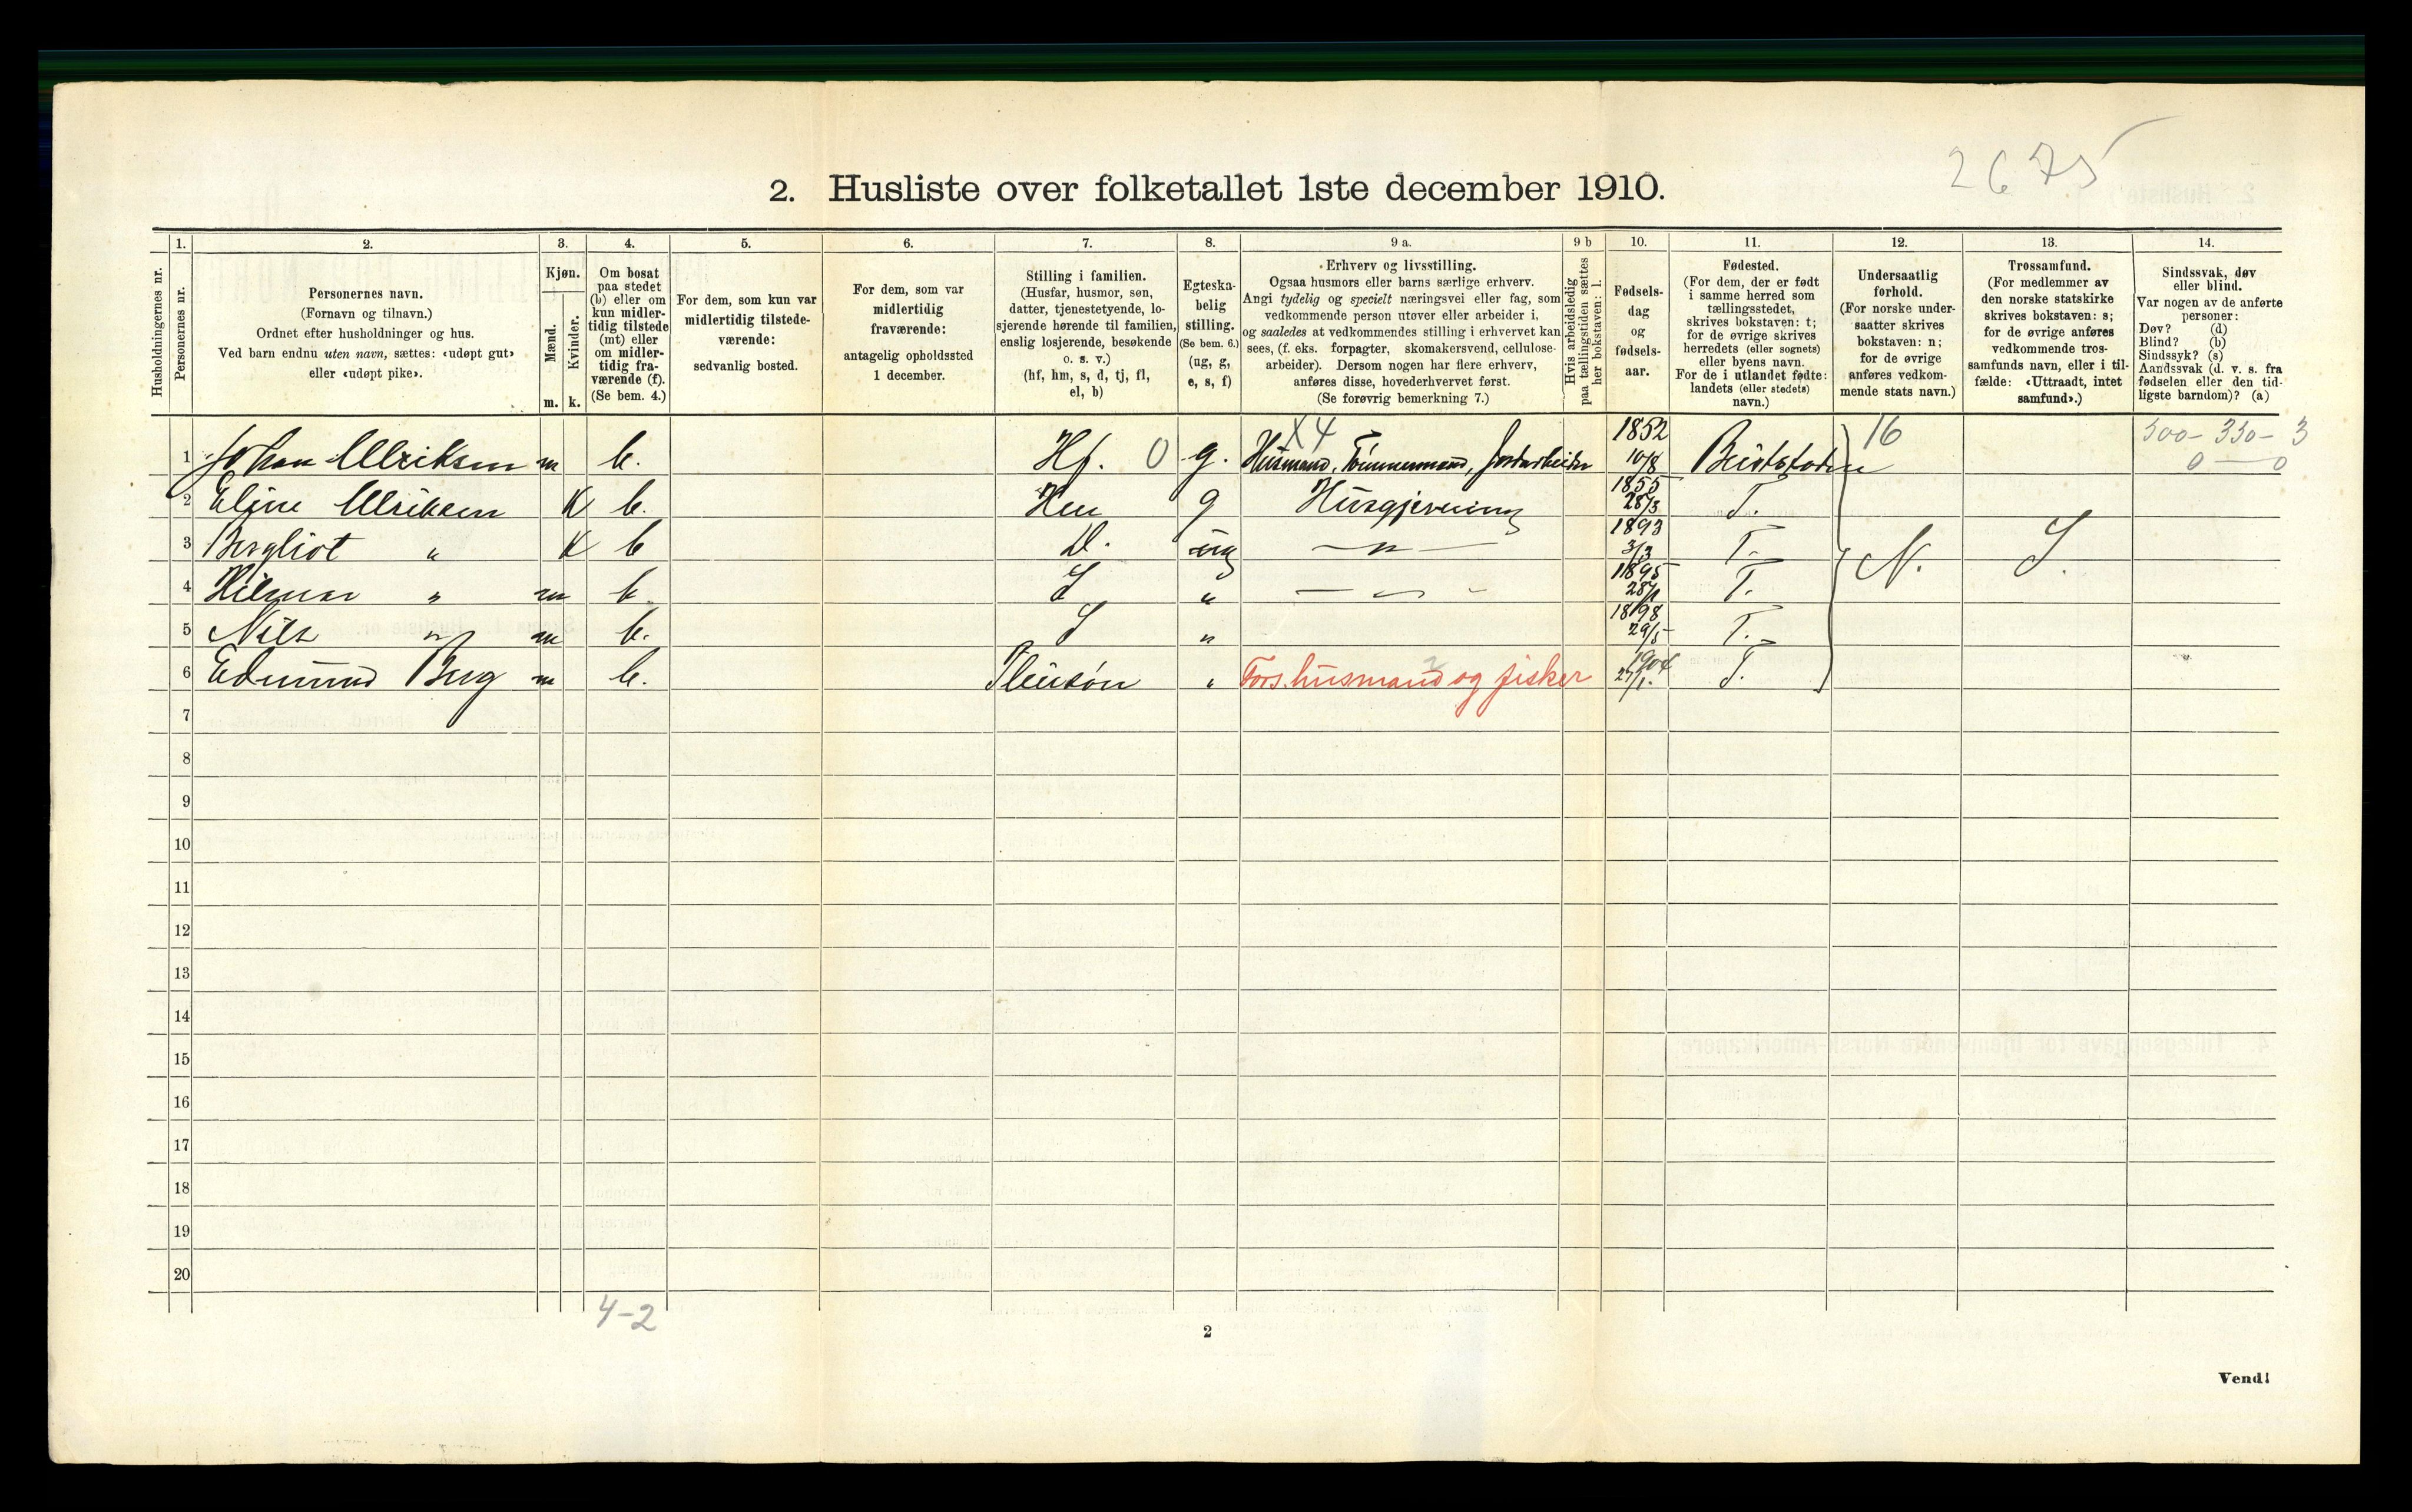 2675
2. Husliste over folketallet 1ste december 1910.
Husholdningernes nr.
1. Personernes nr.
2. Personernes navn.
(Fornavn og tilnavn.)
Ordnet efter husholdninger og hus.
Ved barn endnu uten navn, sættes: «udøpt gut»
eller «udøpt pike».
3. Kjøn.
Mænd. Kvinder.
m. k.
4. Om bosat
paa stedet
(b) eller om
kun midler-
tidig tilstede
(mt) eller
om midler-
tidig fra-
værende (f).
(Se bem. 4.)
5. For dem, som kun var
midlertidig tilstede-
værende:
sedvanlig bosted.
6. For dem, som var
midlertidig
fraværende:
antagelig opholdssted
1 december.
7. Stilling i familien.
(Husfar, husmor, søn,
datter, tjenestetyende, lo-
sjerende hørende til familien,
enslig losjerende, besøkende
o. s. v.)
(hf, hm, s, d, tj, fl,
el, b)
8. Egteska-
belig
stilling.
(Se bem. 6.)
(ug, g,
e, s, f)
9 a. Erhverv og livsstilling.
Ogsaa husmors eller barns særlige erhverv.
Angi tydelig og specielt næringsvei eller fag, som
vedkommende person utøver eller arbeider i,
og saaledes at vedkommendes stilling i erhvervet kan
sees, (f. eks. forpagter, skomakersvend, cellulose-
arbeider). Dersom nogen har flere erhverv,
anføres disse, hovederhvervet først.
(Se forøvrig bemerkning 7.)
9 b Hvis arbeidsledig
paa tællingstiden sættes
her bokstaven: l.
10. Fødsels-
dag
og
fødsels-
aar.
11. Fødested.
(For dem, der er født
i samme herred som
tællingsstedet,
skrives bokstaven: t;
for de øvrige skrives
herredets (eller sognets)
eller byens navn.
For de i utlandet fødte:
landets (eller stedets)
navn.)
12. Undersaatlig
forhold.
(For norske under-
saatter skrives
bokstaven: n;
for de øvrige
anføres vedkom-
mende stats navn.)
13. Trossamfund.
(For medlemmer av
den norske statskirke
skrives bokstaven: s;
for de øvrige anføres
vedkommende tros-
samfunds navn, eller i til-
fælde: «Uttraadt, intet
samfund».)
14. Sindssvak, døv
eller blind.
Var nogen av de anførte
personer:
Døv? (d)
Blind? (b)
Sindssyk? (s)
Aandssvak (d. v. s. fra
fødselen eller den tid-
ligste barndom)? (a)
X4 1852 16 500- 330- 3
1 Johan Ulriksen m b. Hf. 0 g. Husmand, Tømmermand, Jordarbeider 10/8 Beitstaden 0 — 0
2 Eline Ulriksen K b. Hm g Husgjerning 1855 28/3 T.
3 Bergliot " K b D. ug — " — 1893 3/3 T. N. S.
4 Hilmar " m b S " 1895 T.
5 Nils " m b. S " 1898 29/5 T.
6 Edmund Berg m b. Pleiesøn " Fors. husmand og fisker 1904 27/1. T.
7
8
9
10
11
12
13
14
15
16
17
18
19
20
4-2
2
Vend!